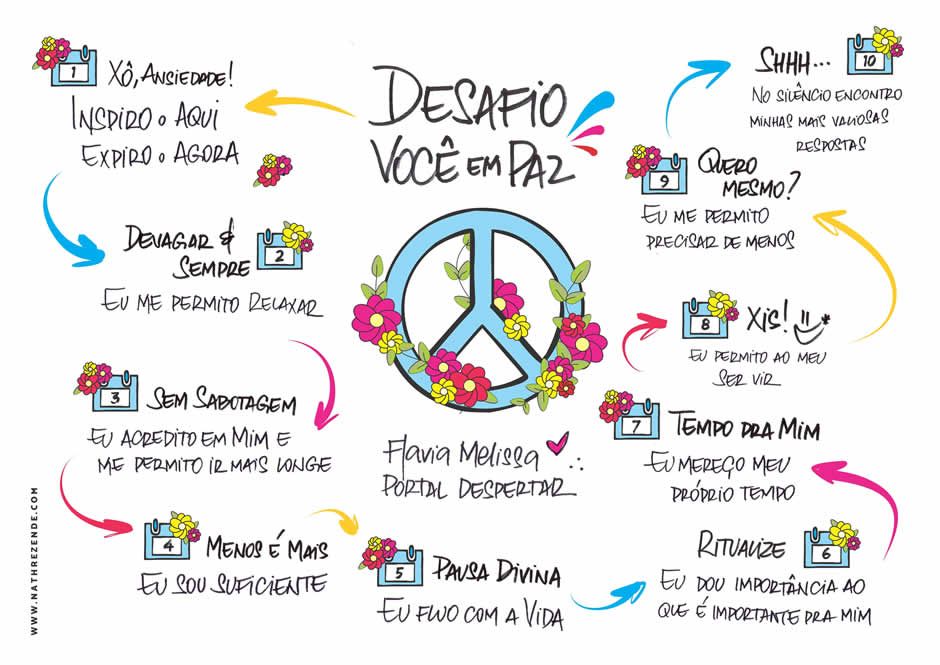 DESAFIO
VOCÊ EM PAZ
1
XÔ, ANSIEDADE!
INSPIRO O AQUI
EXPIRO O AGORA
DEVAGAR &
SEMPRE
2
EU ME PERMITO RELAXAR
3
SEM SABOTAGEM
EU ACREDITO EM MIM E
ME PERMITO IR MAIS LONGE
4
MENOS É MAIS
EU SOU SUFICIENTE
5
PAUSA DIVINA
EU FLUO COM A VIDA
RITUALIZE
6
EU DOU IMPORTÂNCIA AO
QUE É IMPORTANTE PRA MIM
7
TEMPO PRA MIM
EU MEREÇO MEU
PRÓPRIO TEMPO
8
XIS!
EU PERMITO AO MEU
SER VIR
9
QUERO
MESMO?
EU ME PERMITO
PRECISAR DE MENOS
SHHH...
10
NO SILÊNCIO ENCONTRO
MINHAS MAIS VALIOSAS
RESPOSTAS
Flavia Melissa
PORTAL DESPERTAR
WWW.NATHREZENDE.COM